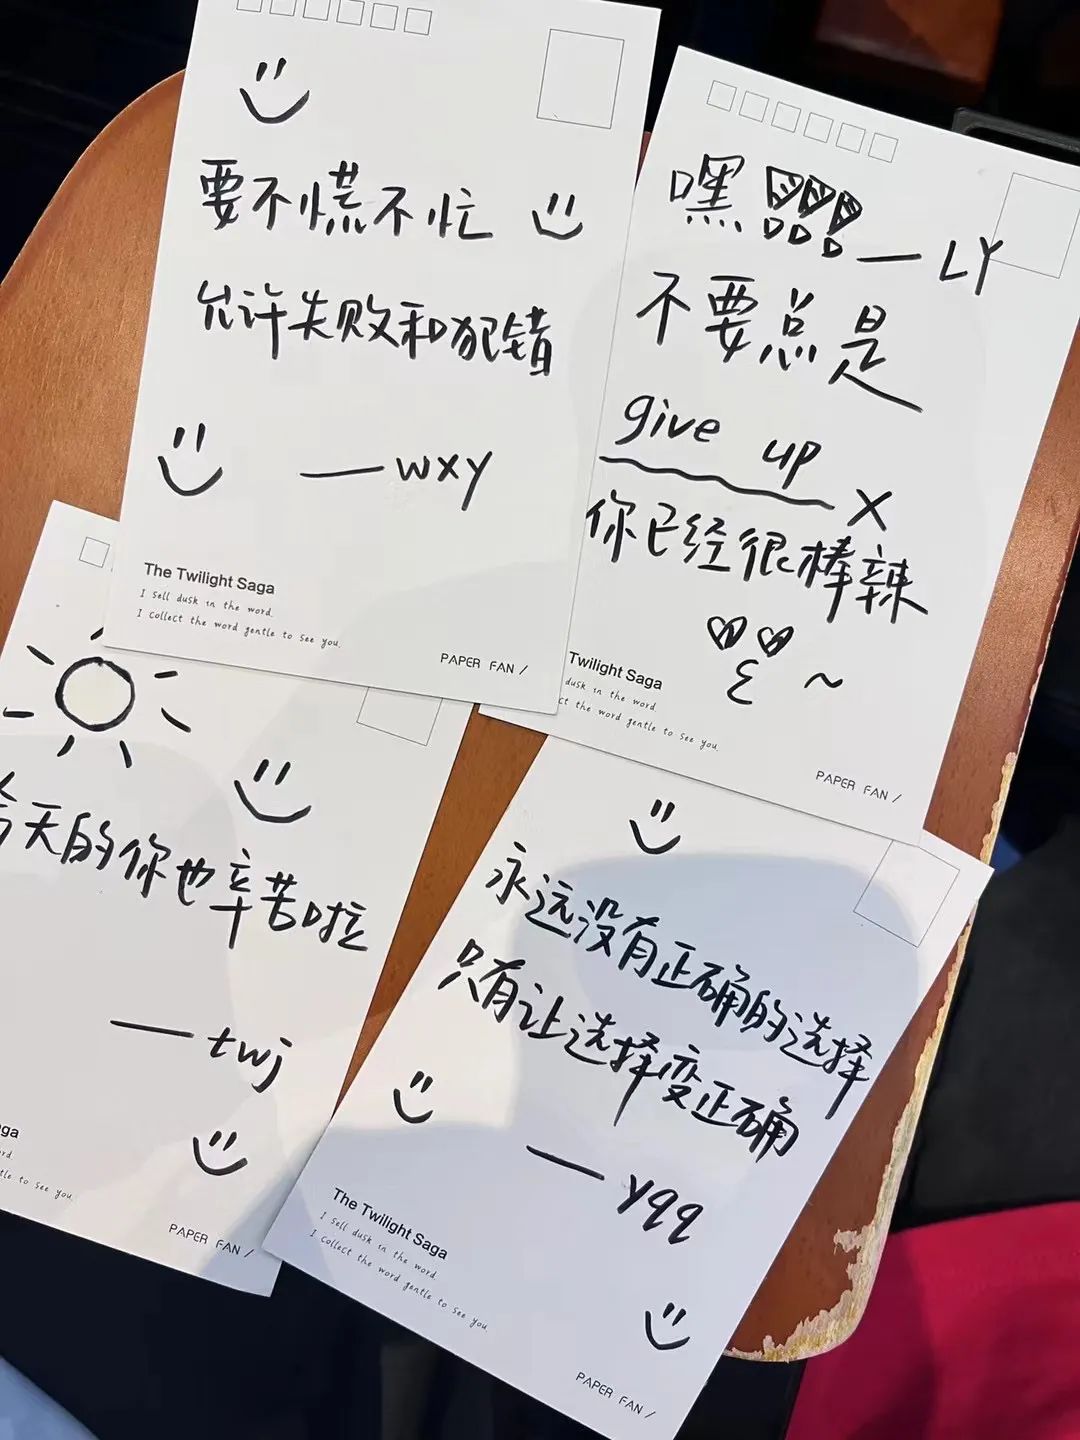 要不慌不忙
允许失败和犯错
——wxy
The Twilight Saga
I sell dusk in the word.
I collect the word gentle to see you.
PAPER FAN /
嘿!!!——LY
不要总是
give up ×
你已经很棒辣
~
Twilight Saga
dusk in the word
ct the word gentle to see you.
PAPER FAN /
今天的你也辛苦啦
——twj
tle to see you.
PAPER FAN /
永远没有正确的选择
只有让选择变正确
——yqq
The Twilight Saga
I sell dusk in the word.
I collect the word gentle to see you.
PAPER FAN /